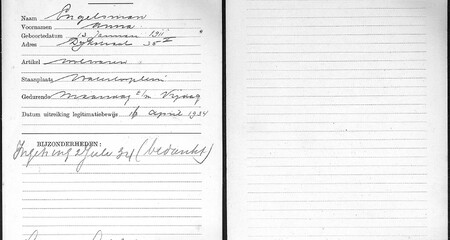 Naam Engelsman
Voornamen Anna
Geboortedatum 13 januari 1911
Adres Dijkstraat 38 II
Artikel wolwaren
Staanplaats Waterlooplein
Gedurende Maandag t/m Vrijdag
Datum uitreiking legitimatiebewijs 16 April 1934
BIJZONDERHEDEN:
Ingeking 2 Juli 34 (bedankt)